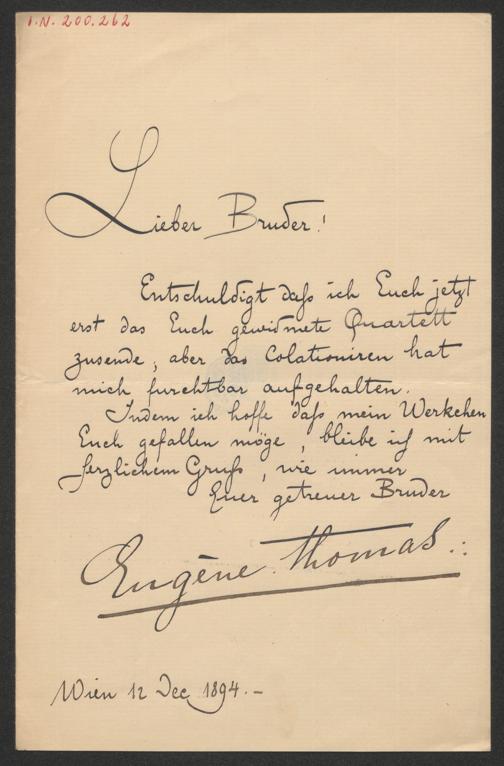 I.N. 200.262
Lieber Bruder!
Entschuldigt daß ich Euch jetzt
erst das Euch gewidmete Quartett
zusende, aber das Colationiren hat
mich furchtbar aufgehalten.
Indem ich hoffe daß mein Werkchen
Euch gefallen möge, bleibe ich mit
herzlichem Gruß, wie immer
Euer getreuer Bruder
Eugène Thomas.:
Wien 12 Dec 1894.-